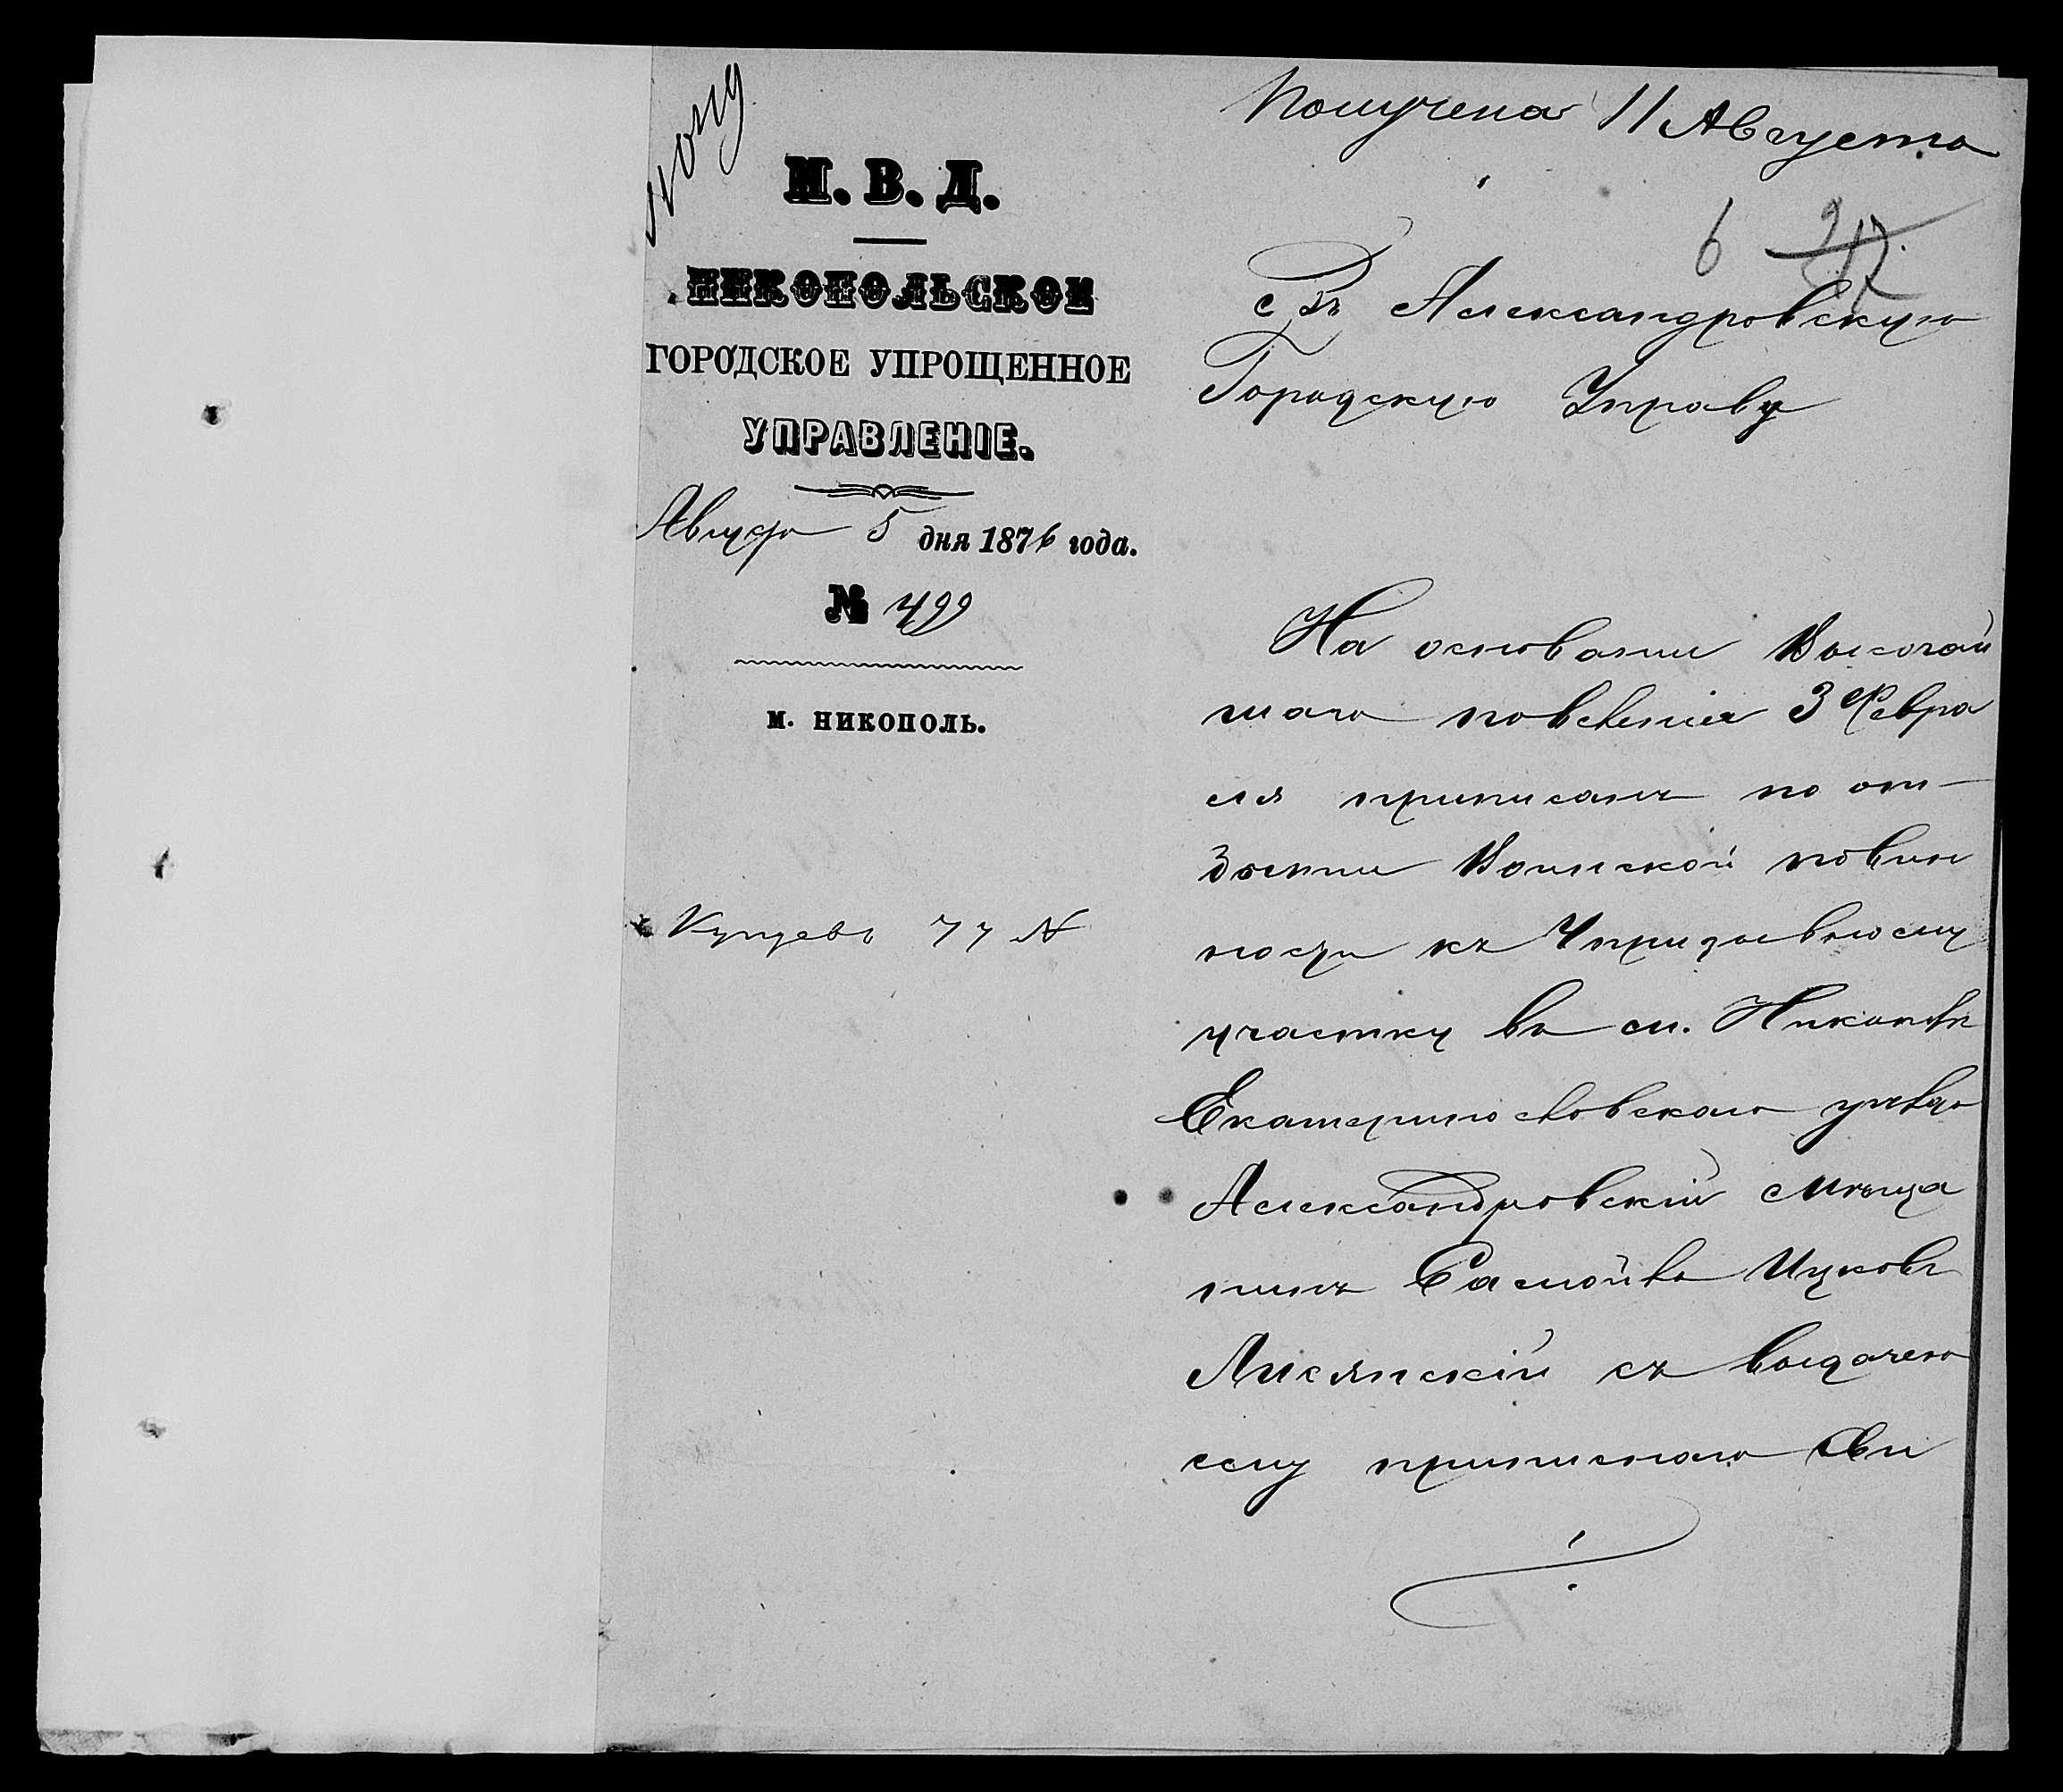 М. В. Д.
НИКОПОЛЬСКОЕ
ГОРОДСКОЕ УПРОЩЕННОЕ
УПРАВЛЕНІЕ.
Августа 5 дня 1876 года.
№ 499
м. НИКОПОЛЬ.
Получена 11 Августа
6
Въ Александровскую
Городскую Управу
На основании Высочай
шаго повеленія 3 Февра
ля приписанъ по от-
бытии Воинской повин
ности къ 4 призывному
участку въ м. Никополѣ
Екатеринославскаго уѣзда
Александровскій Мѣща
нинъ Самойло Ицковъ
Лисянскій съ выдачею
ему приписнаго Сви